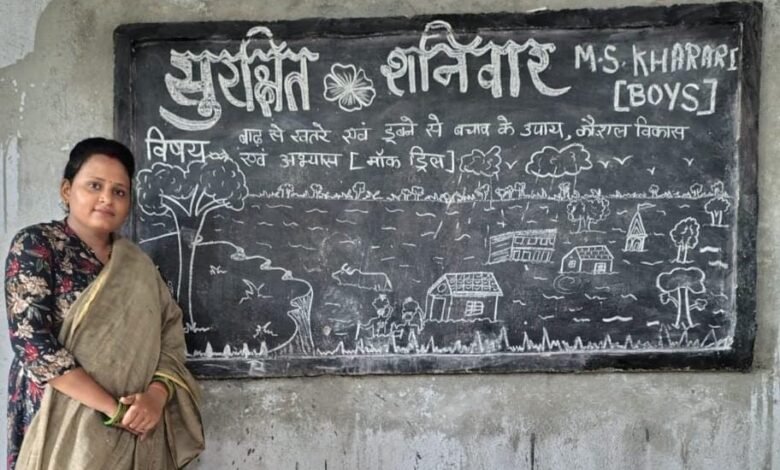 सुरक्षित शनिवार
M.S. KHARARI
[BOYS]
विषय~ बाढ़ से खतरे एवं डूबने से बचाव के उपाय, कौशल विकास
एवं अभ्यास [मॉक ड्रिल]